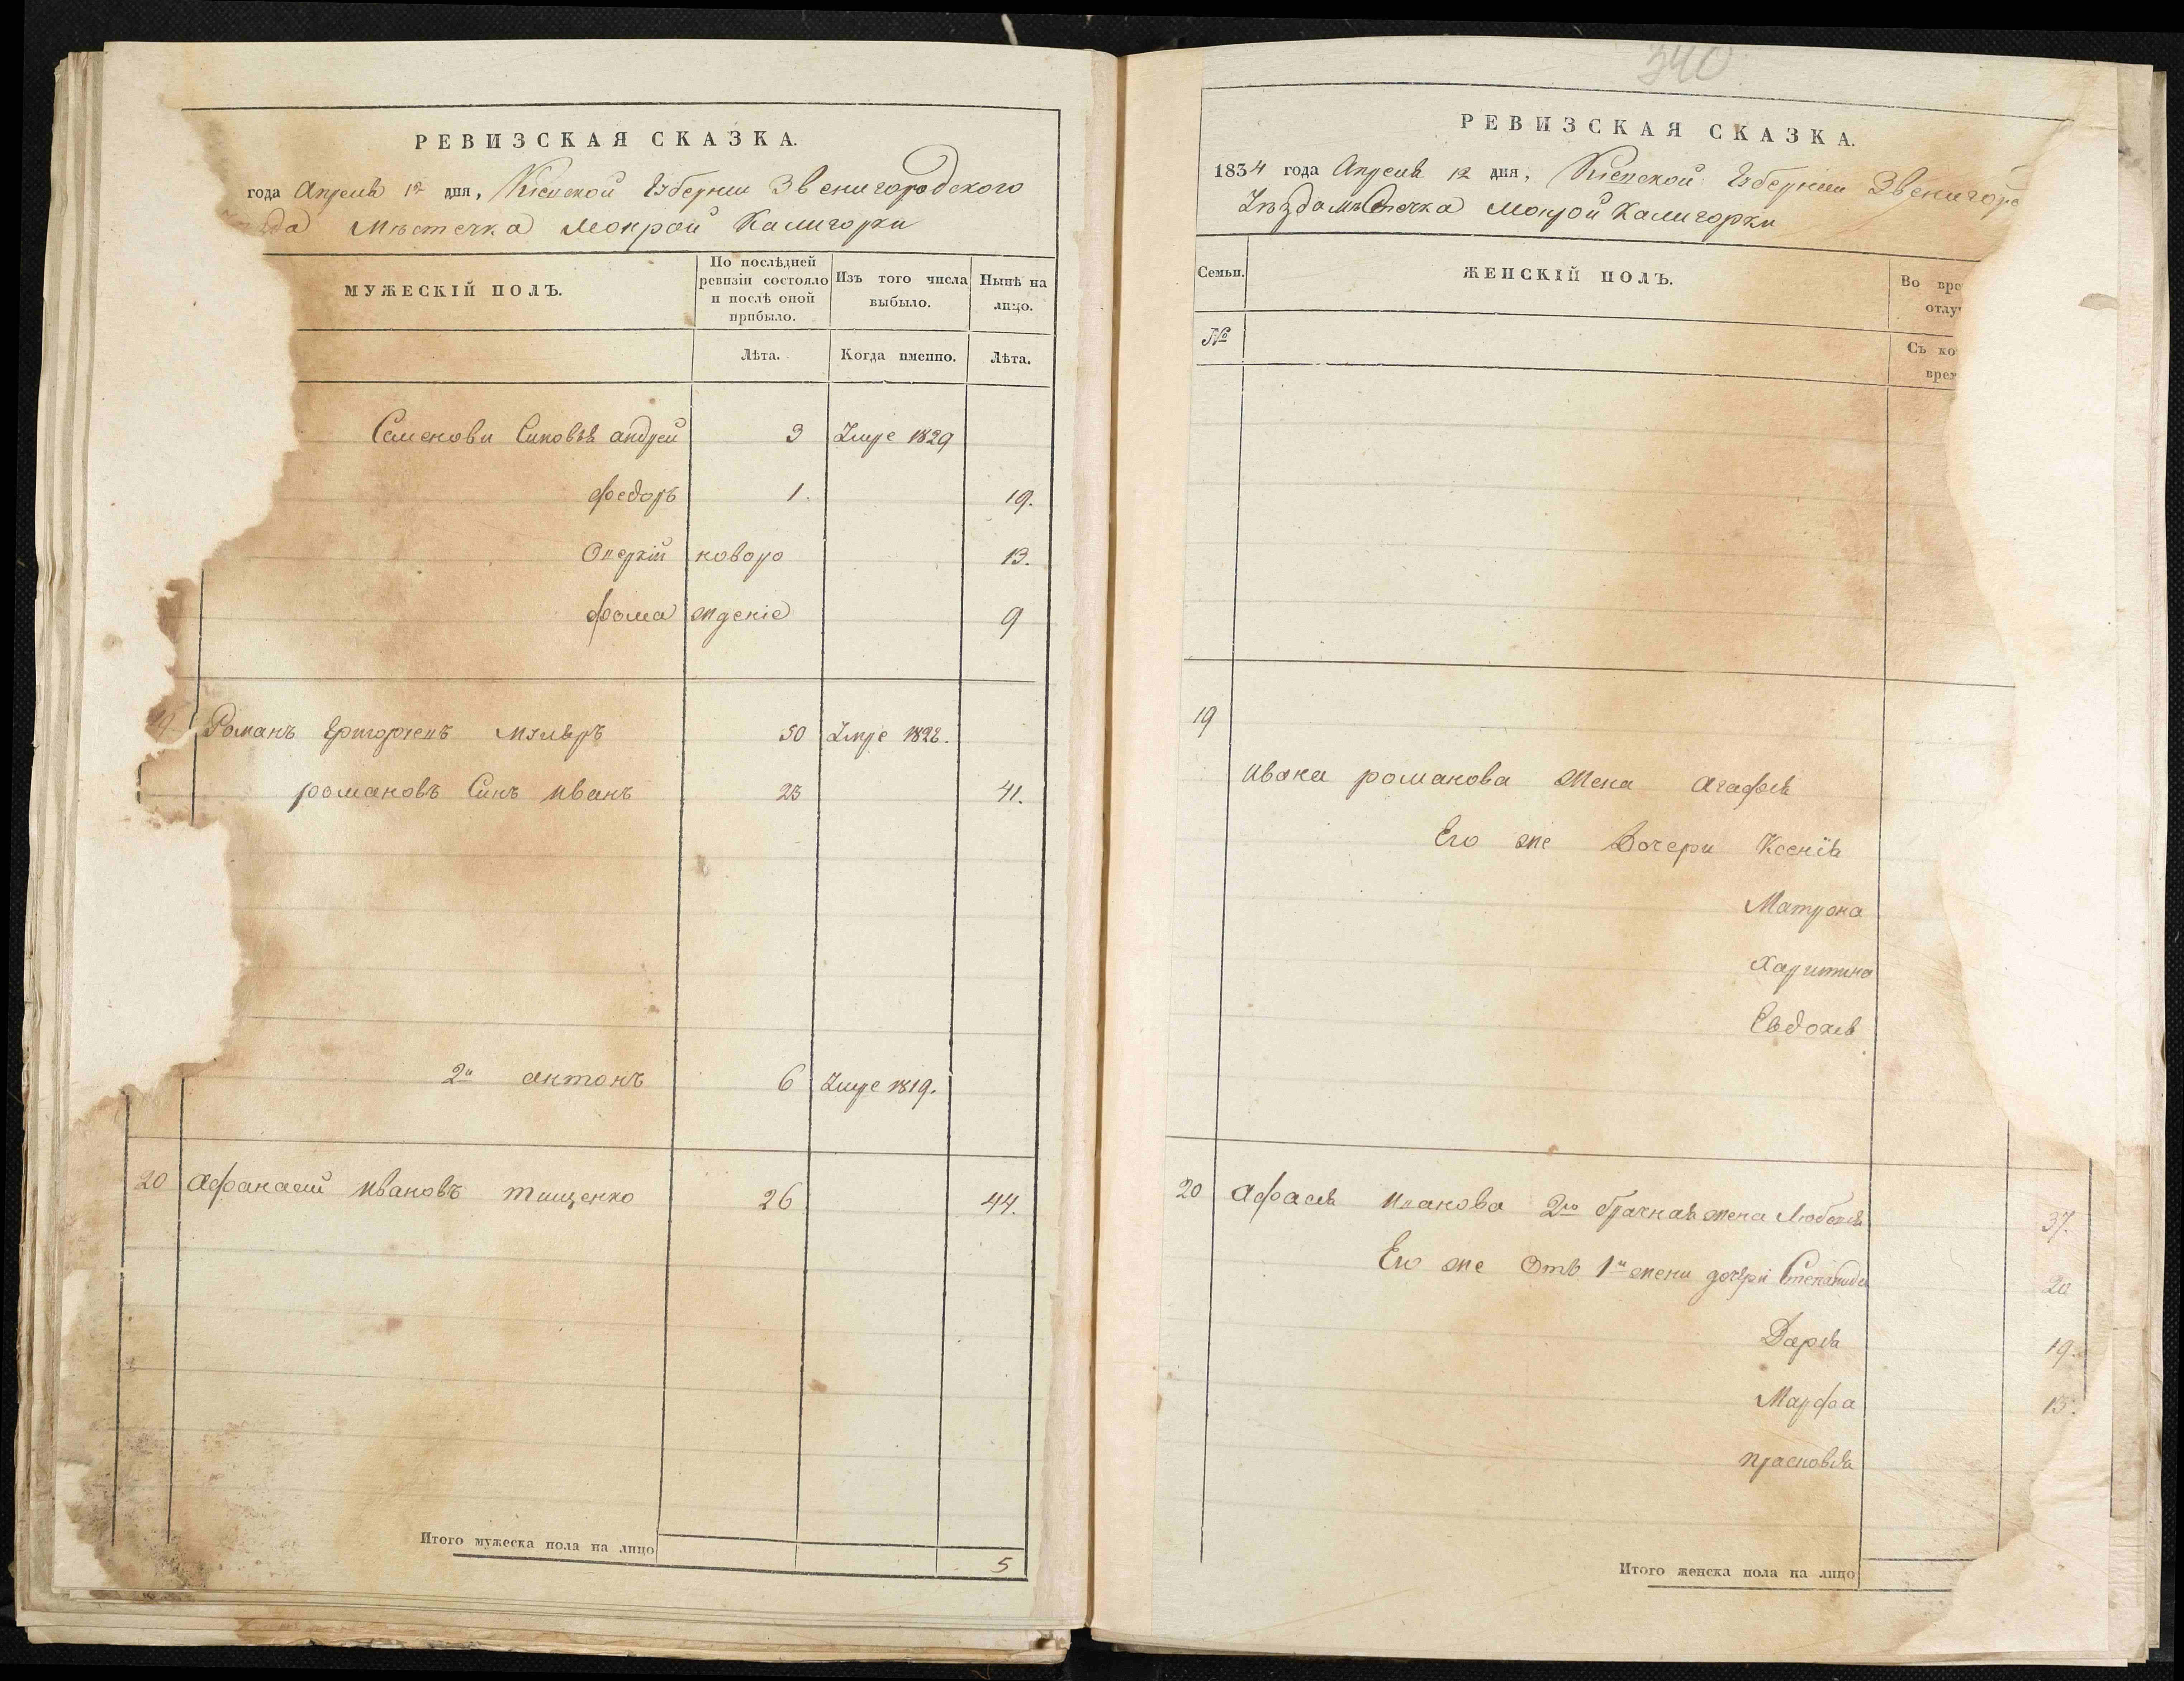 РЕВИЗСКАЯ СКАЗКА.
года Апреля 12 дня, Кіевской Губернии Звенигородского
Мѣстечка Мокрой Калигорки
МУЖЕСКІЙ ПОЛЪ.
По послѣдней ревизіи состояло и послѣ оной прибыло.
Изъ того числа выбыло.
Нынѣ на лицо.
Лѣта.
Когда именно.
Лѣта.
Семенови Синовья андрей 3 Умре 1829
федоръ 1. 19.
новоро 13.
фома ждение 9
19 Романъ 50 Умре
романовъ Синъ иванъ 23 41.
2й антонъ 6 Умре 1819.
20 афанасий ивановъ тищенко 26 44.
Итого мужеска пола на лицо 5
340
РЕВИЗСКАЯ СКАЗКА.
1834 года Апреля 12 дня, Кіевской Губернии Звенигоро
Уѣзда мѣстечка Мокрой Калигорки
Семьи.
ЖЕНСКІЙ ПОЛЪ.
Во вре
отлу
№
Съ ко
врем
19
ивана романова жена агафия
Его же дочери Ксенія
Матрона
Харитина
Евдокия
20 ивановa 2го брачная жена 37.
Его же Отъ 1й жени дочери Степанида 20
Дария 19.
Марфа 15.
прасковия
Итого женска пола на лицо